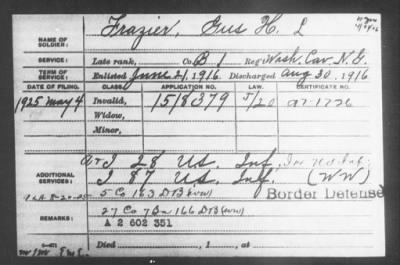 NAME OF SOLDIER: Frazier, Gus H. L
SERVICE: Late rank, Co. B 1 Reg't Wash. Cav. N. G.
TERM OF SERVICE: Enlisted June 21, 1916. Discharged Aug 30, 1916
DATE OF FILING. CLASS. APPLICATION NO. LAW. CERTIFICATE NO.
1925 May 4 Invalid, 1518379 J/20 A7-1726
Widow,
Minor,
ADDITIONAL SERVICES:
28 US. Inf.
I 87 US. Inf. (WW)
5 Co 163 DB (WW) Border Defense
REMARKS: 27 Co 7 Bn 166 DB (WW)
A 2 602 351
Died , 1 , at